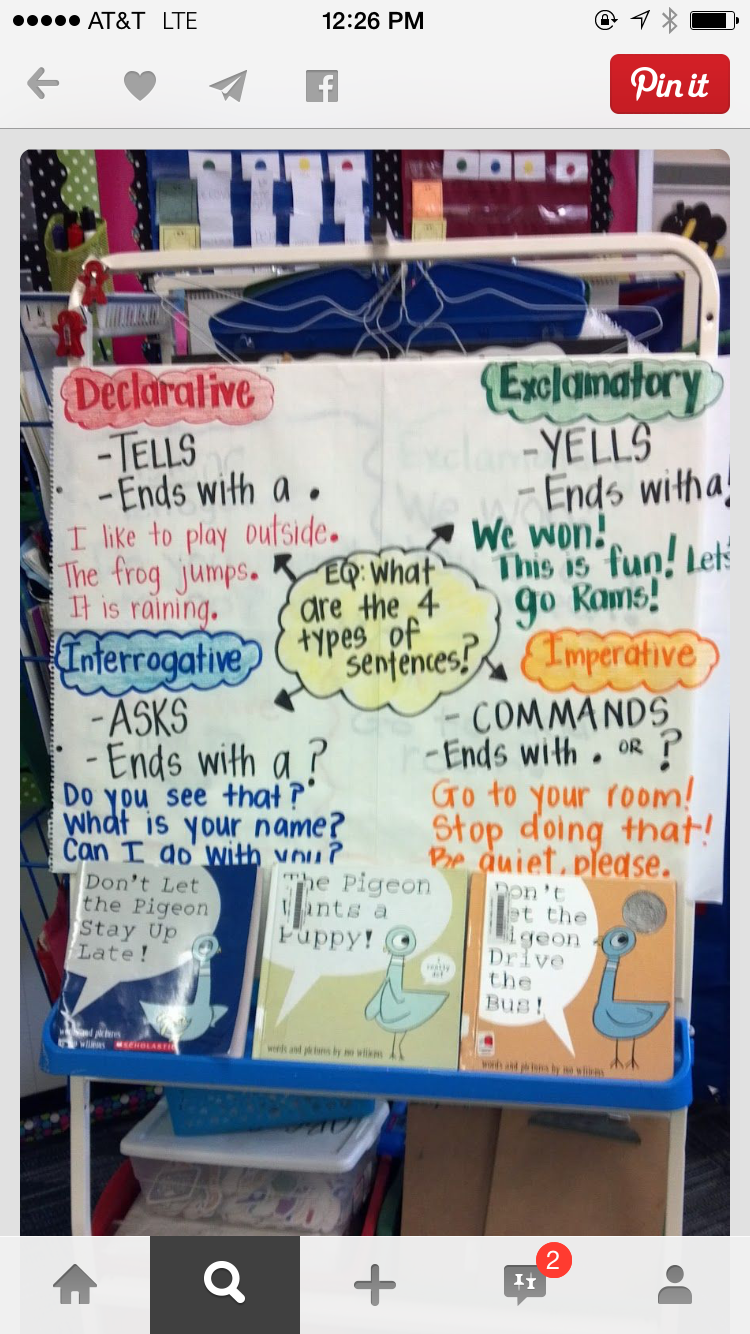 AT&T LTE 12:26 PM
Pin it
Declarative
-TELLS
-Ends with a .
I like to play outside.
The frog jumps.
It is raining.
Exclamatory
-YELLS
-Ends with a!
We won!
This is fun! Let's
go Rams!
EQ: What
are the 4
types of
sentences?
Interrogative
-ASKS
-Ends with a ?
Do you see that?
What is your name?
Can I go with you?
Imperative
- COMMANDS
-Ends with . OR ?
Go to your room!
Stop doing that!
Be quiet, please.
Don't Let
the Pigeon
Stay Up
Late!
words and pictures
by mo willems
SCHOLASTIC
The Pigeon
Wants a
Puppy!
words and pictures by mo willems
Don't
Let the
Pigeon
Drive
the
Bus!
words and pictures by mo willems
2